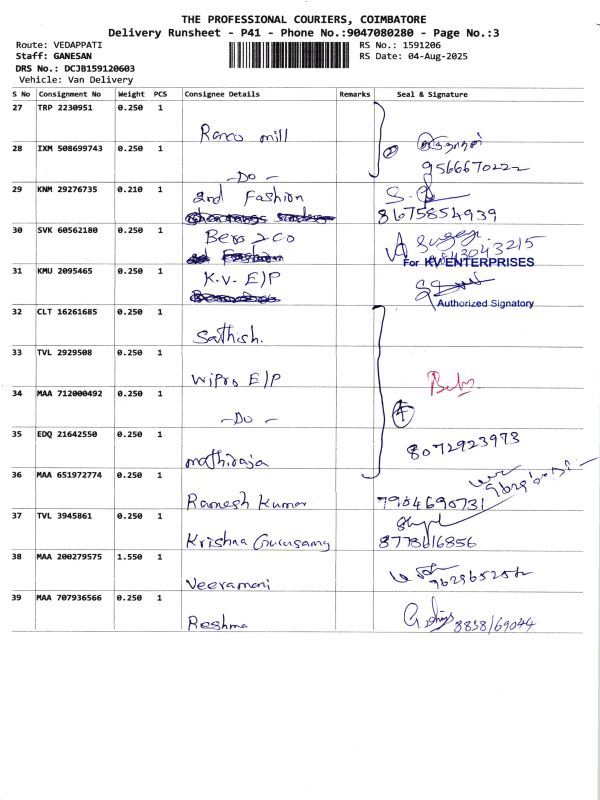 THE PROFESSIONAL COURIERS, COIMBATORE
Delivery Runsheet - P41 - Phone No.:9047080280 - Page No.:3
Route: VEDAPPATI
Staff: GANESAN
DRS No.: DCJB159120603
Vehicle: Van Delivery
RS No.: 1591206
RS Date: 04-Aug-2025
S No Consignment No Weight PCS Consignee Details Remarks Seal & Signature
27 TRP 2230951 0.250 1
Ranco mill
28 IXM 508699743 0.250 1
-Do-
2
9566670222
29 KNM 29276735 0.210 1
2nd Fashion
8675854939
30 SVK 60562180 0.250 1
Bero 2 co
31 KMU 2095465 0.250 1
K.V. E/P
For KV ENTERPRISES
Authorized Signatory
32 CLT 16261685 0.250 1
Sathish.
33 TVL 2929508 0.250 1
Wipro E/P
34 MAA 712000492 0.250 1
-Do-
4
35 EDQ 21642550 0.250 1
mathiraja
8072923973
36 MAA 651972774 0.250 1
Ramesh Kumar
7904690731
37 TVL 3945861 0.250 1
Krishna Gurusamy
8778616856
38 MAA 200279575 1.550 1
Veeramani
39 MAA 707936566 0.250 1
Reshma